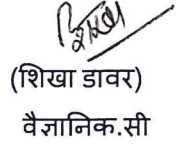 (शिखा डावर)
वैज्ञानिक.सी